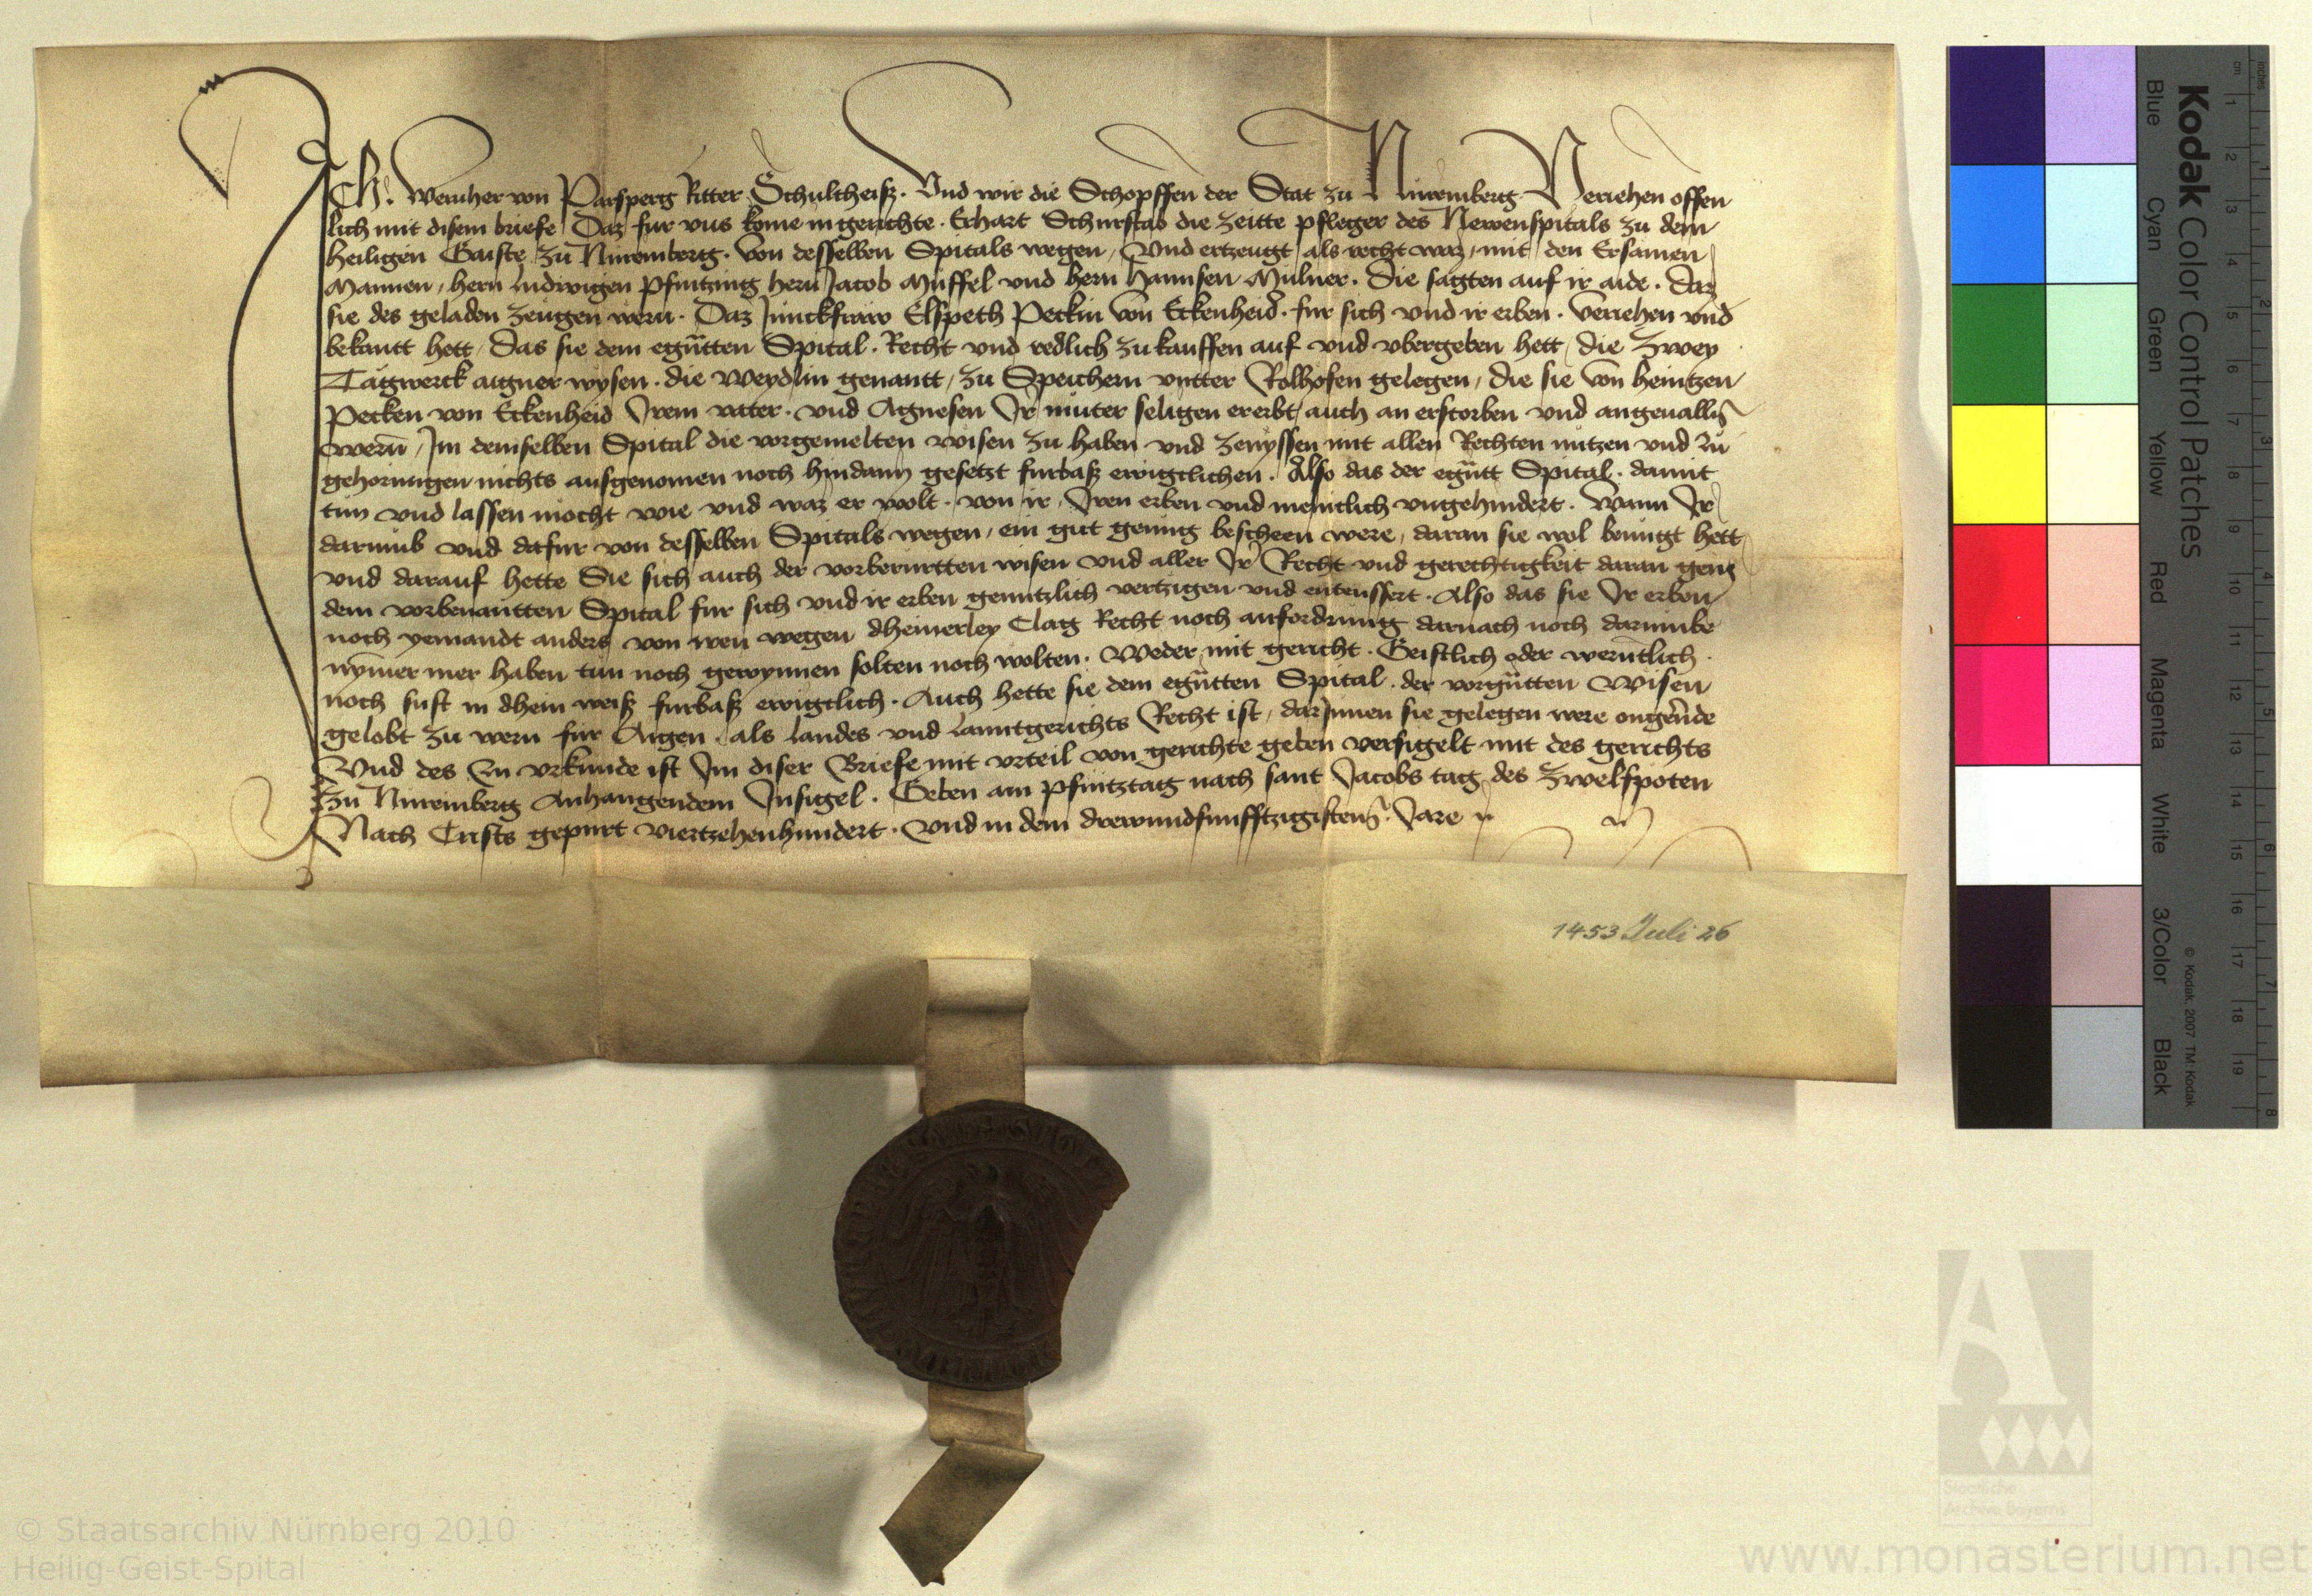 Ich Wernher von Parsperg Ritter Schultheiß. Und wir die Schopffen der Stat zu Nuremberg Veriehen offen
lich mit disem briefe Daz fur vns kome in gerichte. Erhart Schurstab die zeitte pfleger des Newenspitals zu dem
heiligen Gaiste zu Nuremberg. von desselben Spitals wegen, Vnd ertzeugt als recht waz, mit den Ersamen
Mannen, hern ludwigen pfintzing hern Jacob Muffel vnd hern hannsen Mulner. Die sagten auf ir aide. Daz
sie des geladen zeugen wern. Daz Junckfraw Elspeth Peckin von Eckenheid. fur sich vnd ir erben. veriehen vnd
bekantt hett, das sie dem egütten Spital. Recht vnd redlich zu kauffen auf vnd vbergeben hett, die zwey
Tagwerck aigner wysen. die Weydlin genantt, zu Speichern vntter Rolhofen gelegen, die sie von heintzen
Pecken von Eckenheid Irem vater. vnd Agnesen Ir muter seligen ererbt, auch an erstorben vnd angeualln̄
wern̄, Im demselben Spital die vorgemelten wisen zu haben vnd zenyssen mit allen Rechten nutzen vnd zu
gehorungen nichts ausgenomen noch hindann gesetzt furbaß ewigclichen. Also das der egütt Spital. damit
tun vnd lassen mocht wie vnd waz er wolt. von ir, Iren erben vnd meniclich vngehindert. Wann Ir
darumb vnd dafur von desselben Spitals wegen, ein gut genug bescheen were, daran sie wol benugt hett
vnd darauf hette Sie sich auch der vorberurtten wisen vnd aller Ir Recht vnd gerechtigkeit daran gein
dem vorbenantten Spital fur sich vnd ir erben genntzlich vertzigen vnd entenssert. Also das sie Ir erben
noch yemandt anders von iren wegen dheinerley Clag Recht noch anfordrung darnach noch darumbe
nym̄er mer haben tun noch gewynnen solten noch wolten. Weder mit gericht. Geistlich oder werntlich.
noch sust in dhein weiß furbaß ewigclich. Auch hette sie dem egütten Spital. der vorgütten Wisen
gelobt zu wern fur Aigen. als landes vnd lanntgerichts Recht ist, darInnen sie gelegen were ongeu̇de
Vnd des Zu vrkunde ist Im diser Briefe mit vrteil von gerichte geben versigelt mit des gerichts
zu Nuremberg Anhangendem Insigel. Geben am pfintztag nach sant Jacobs tag des Zwelfpoten
Nach Crists gepurt viertzehenhundert. vnd in dem drewundfunfftzigisten. Jare
1453 Juli 26
Kodak Color Control Patches
© Kodak, 2007 TM: Kodak
Blue Cyan Green Yellow Red Magenta White 3/Color Black
cm 1 2 3 4 5 6 7 8 9 10 11 12 13 14 15 16 17 18 19
inches 1 2 3 4 5 6 7 8
Staatliche
Archive Bayerns
© Staatsarchiv Nürnberg 2010
Heilig-Geist-Spital
www.monasterium.net